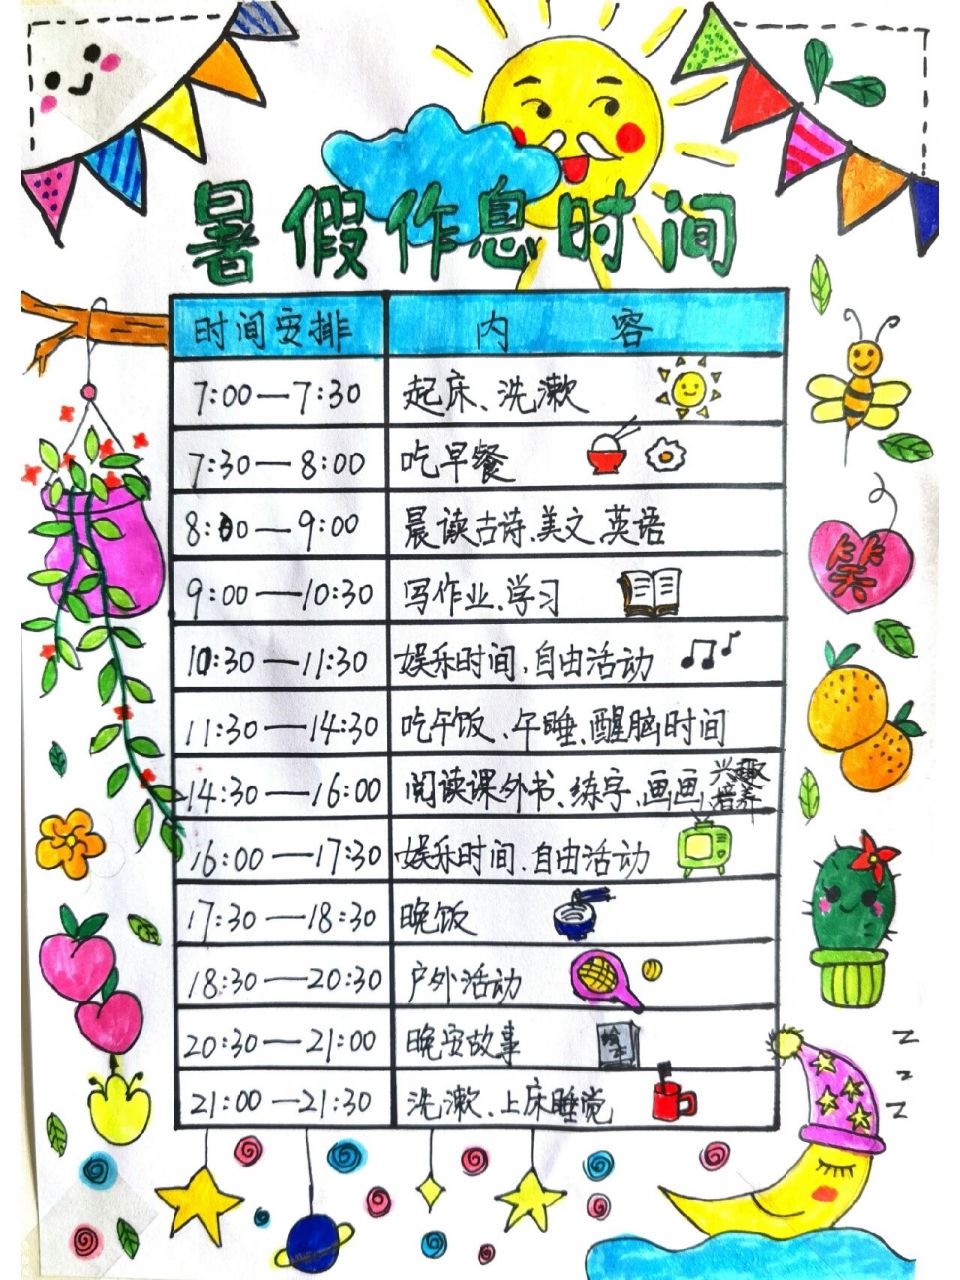 暑假作息时间
时间安排 内容
7:00—7:30 起床、洗漱
7:30—8:00 吃早餐
8:00—9:00 晨读古诗、美文、英语
9:00—10:30 写作业、学习
10:30—11:30 娱乐时间、自由活动
11:30—14:30 吃午饭、午睡、醒脑时间
14:30—16:00 阅读课外书、练字、画画 兴趣培养
16:00—17:30 娱乐时间、自由活动
17:30—18:30 晚饭
18:30—20:30 户外活动
20:30—21:00 晚安故事 绘本
21:00—21:30 洗漱、上床睡觉
笑
z
z
z